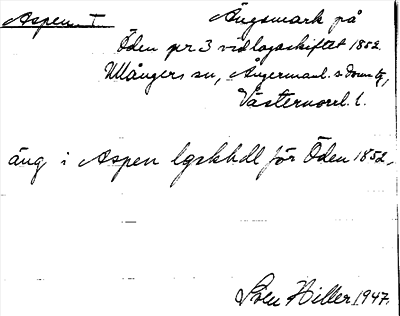 Aspen I
Ängsmark på
Öden pr 3 vid lagaskiftet 1852.
Ullångers sn, Ångermanl. s. doms tg,
Västernorrl. l.
äng i Aspen lgskhdl för Öden 1852.
Sven Hiller 1947.